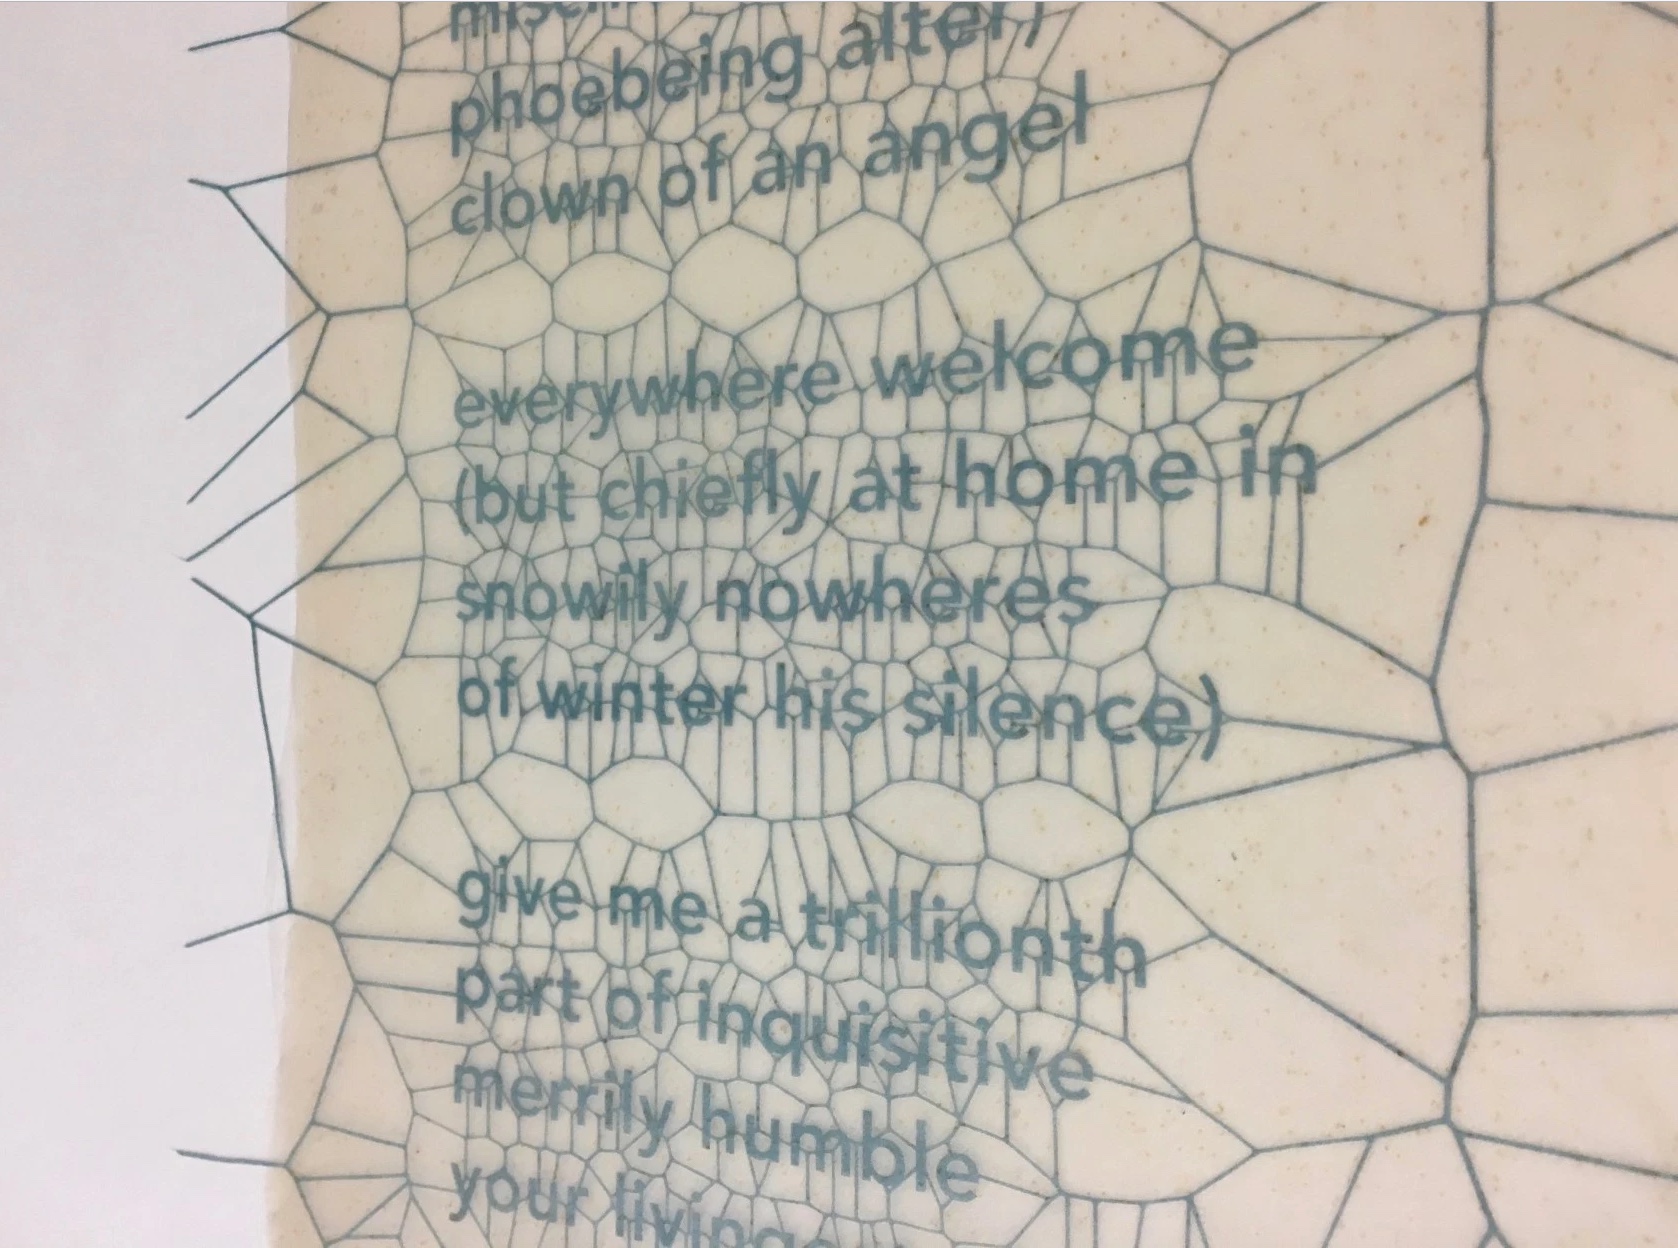 phoebeing alter)
clown of an angel
everywhere welcome
(but chiefly at home in
snowily nowheres
of winter his silence)
give me a trillionth
part of inquisitive
merrily humble
your living